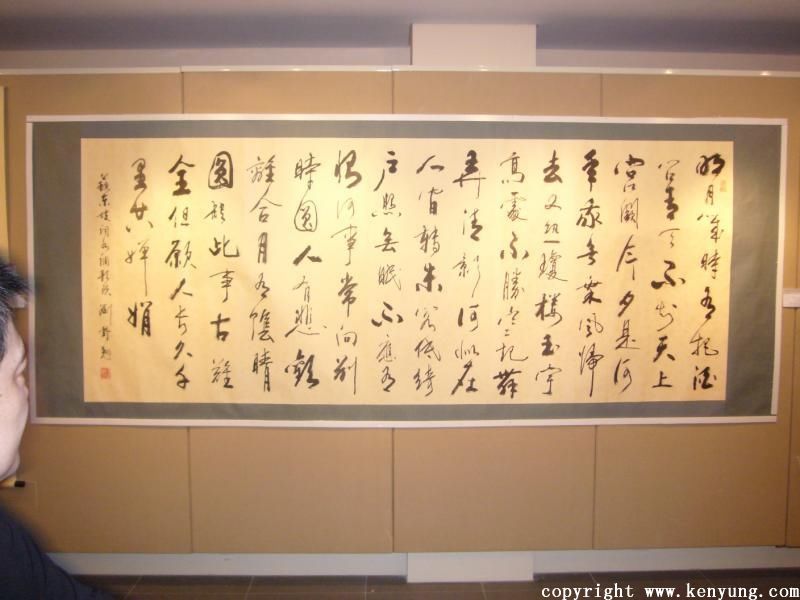 明月幾時有把酒
問青天不知天上
宮闕今夕是何
年我欲乘風歸
去又恐瓊樓玉宇
高處不勝寒起舞
弄清影何似在
人間轉朱閣低綺
戶照無眠不應有
恨何事常向別
時圓人有悲歡
離合月有陰晴
圓缺此事古難
全但願人長久千
里共嬋娟
蘇東坡詞水調歌頭
copyright www.kenyung.com